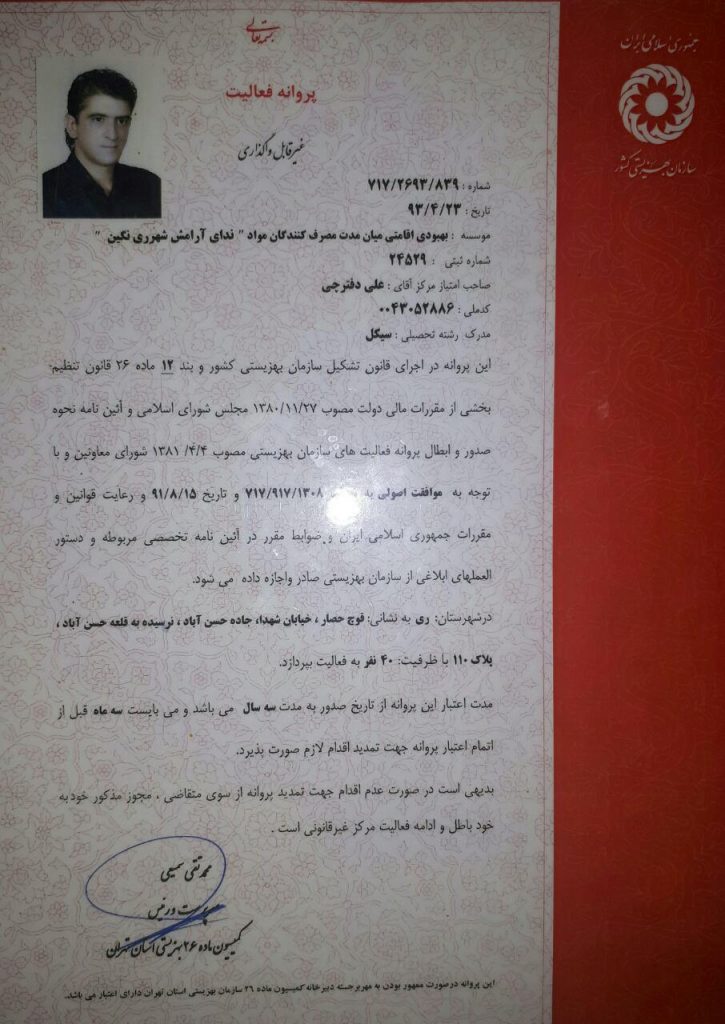 بسمه تعالی
جمهوری اسلامی ایران
سازمان بهزیستی کشور
پروانه فعالیت
غیرقابل واگذاری
شماره : ۷۱۷/۲۶۹۳/۸۳۹
تاریخ : ۹۳/۴/۲۳
موسسه : بهبودی اقامتی میان مدت مصرف کنندگان مواد " ندای آرامش شهرری نگین "
شماره ثبتی : ۲۴۵۲۹
صاحب امتیاز مرکز آقای : علی دفترچی
کدملی : ۰۰۴۳۰۵۲۸۸۶
مدرک رشته تحصیلی : سیکل
این پروانه در اجرای قانون تشکیل سازمان بهزیستی کشور و بند ۱۲ ماده ۲۶ قانون تنظیم
بخشی از مقررات مالی دولت مصوب ۱۳۸۰/۱۱/۲۷ مجلس شورای اسلامی و آئین نامه نحوه
صدور و ابطال پروانه فعالیت های سازمان بهزیستی مصوب ۴/۴/ ۱۳۸۱ شورای معاونین و با
توجه به موافقت اصولی به ۷۱۷/۹۱۷/۱۳۰۸ و تاریخ ۹۱/۸/۱۵ و رعایت قوانین و
مقررات جمهوری اسلامی ایران و ضوابط مقرر در آئین نامه تخصصی مربوطه و دستور
العملهای ابلاغی از سازمان بهزیستی صادر واجازه داده می شود.
درشهرستان: ری به نشانی: قوچ حصار ، خیابان شهدا، جاده حسن آباد ، نرسیده به قلعه حسن آباد ،
پلاک ۱۱۰ با ظرفیت: ۴۰ نفر به فعالیت بپردازد.
مدت اعتبار این پروانه از تاریخ صدور به مدت سه سال می باشد و می بایست سه ماه قبل از
اتمام اعتبار پروانه جهت تمدید اقدام لازم صورت پذیرد.
بدیهی است در صورت عدم اقدام جهت تمدید پروانه از سوی متقاضی ، مجوز مذکور خود به
خود باطل و ادامه فعالیت مرکز غیرقانونی است .
محمد تقی سمیعی
سرپرست و رئیس
کمیسیون ماده ۲۶ بهزیستی استان تهران
این پروانه درصورت ممهور بودن به مهر برجسته دبیرخانه کمیسیون ماده ۲۶ سازمان بهزیستی استان تهران دارای اعتبار می باشد.